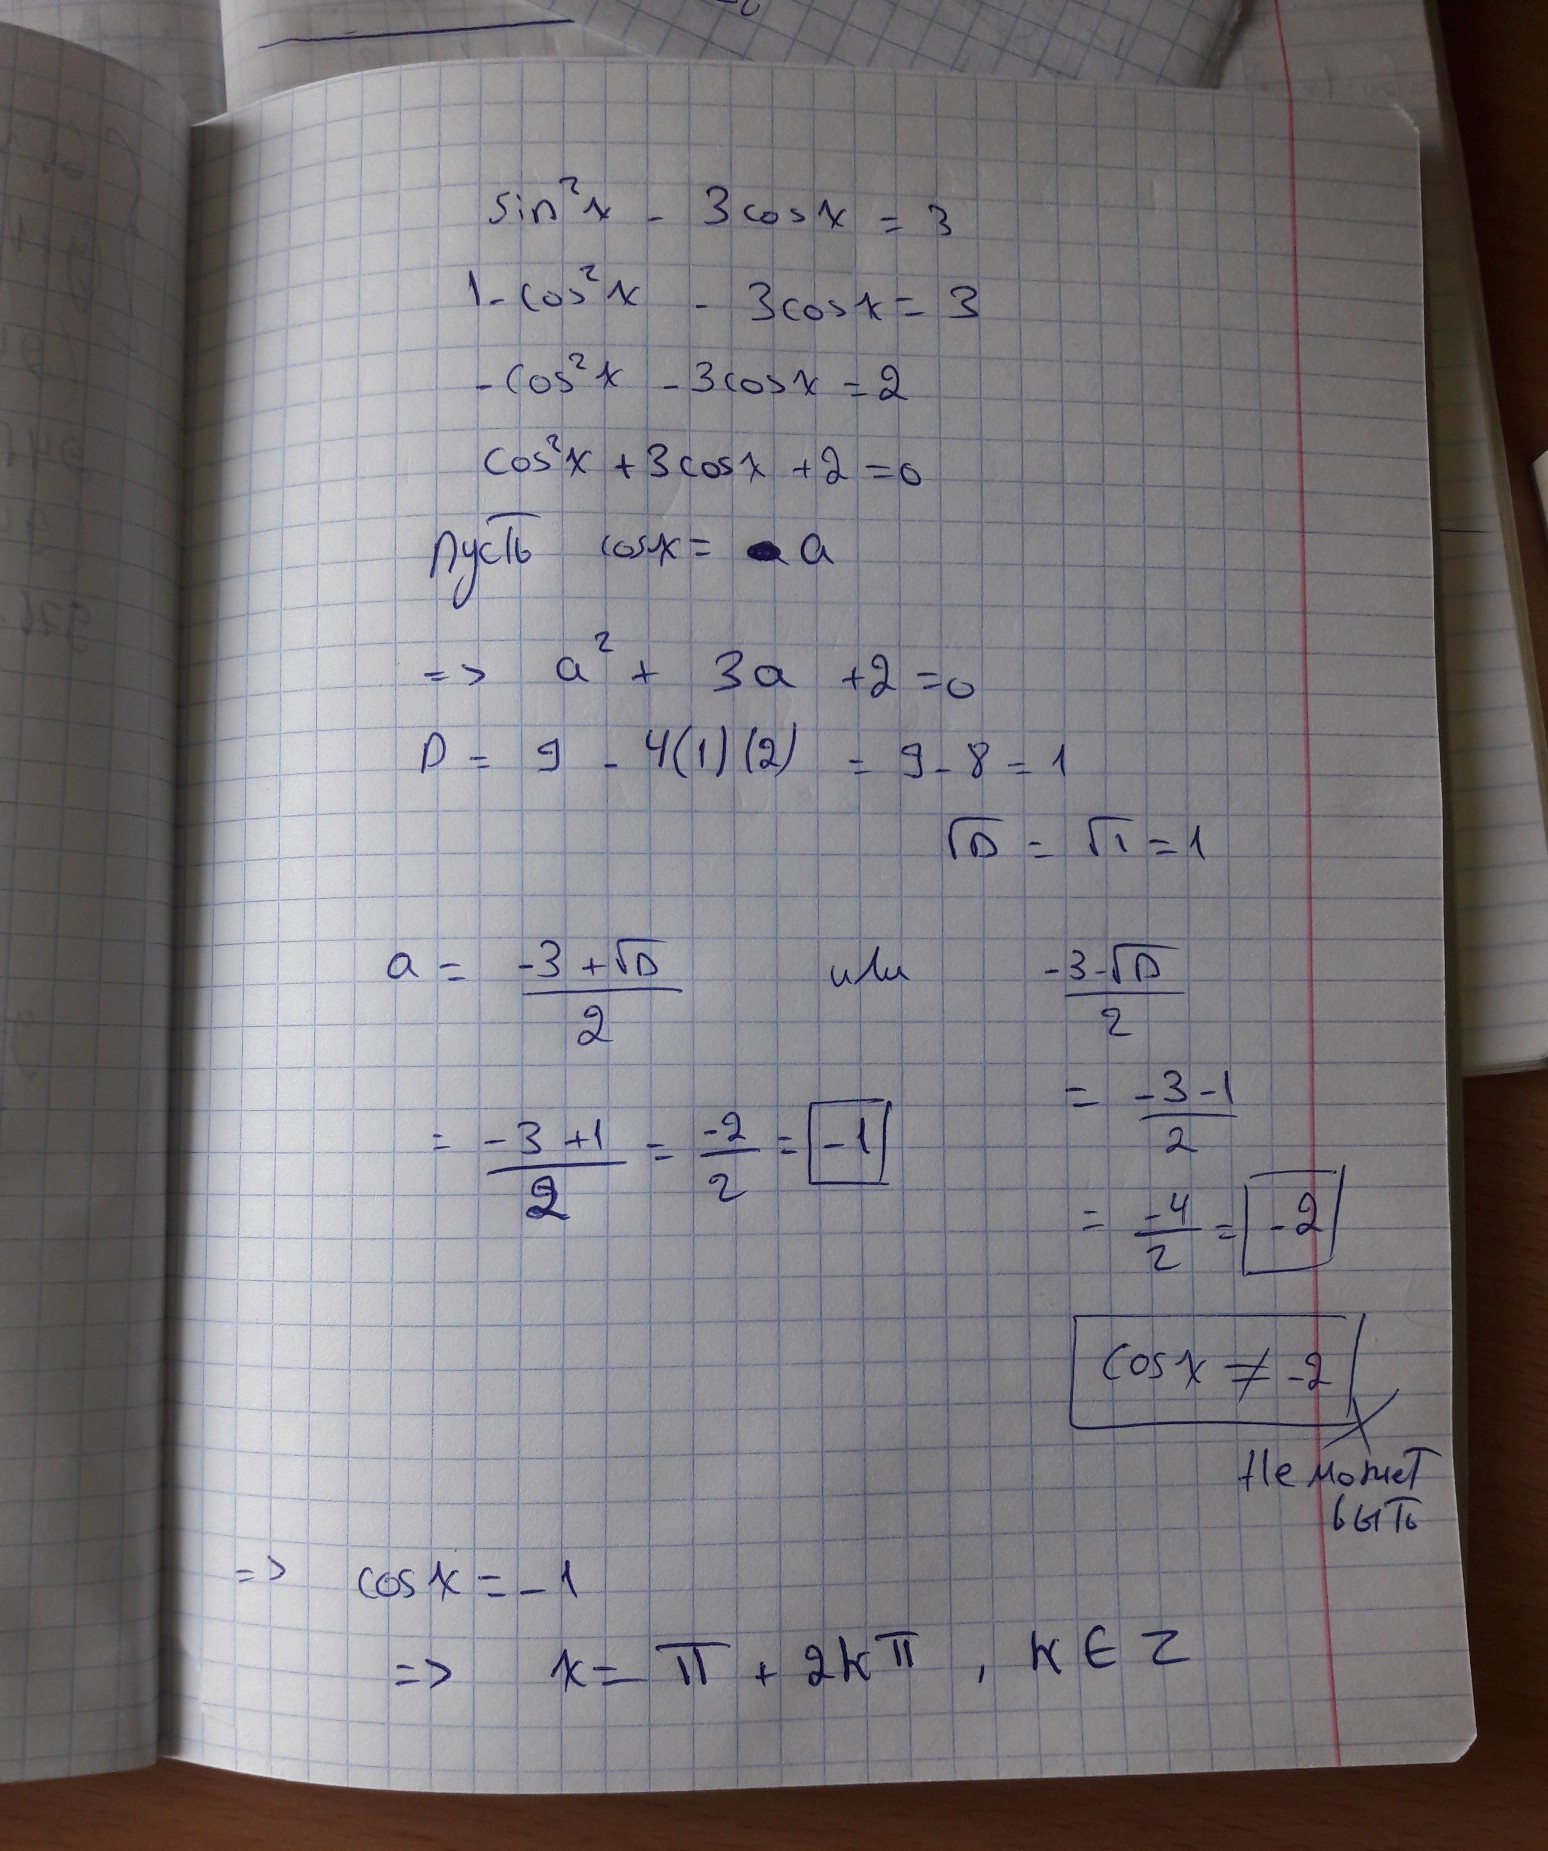 sin²x - 3cosx = 3
1-cos²x - 3cosx = 3
-cos²x - 3cosx = 2
cos²x + 3cosx + 2 = 0
Пусть cosx = a
=> a² + 3a + 2 = 0
D = 9 - 4(1)(2) = 9 - 8 = 1
√D = √1 = 1
a = (-3 + √D)/2 или (-3 - √D)/2
= (-3 + 1)/2 = -2/2 = -1
= (-3 - 1)/2
= -4/2 = -2
cosx ≠ -2
Не может
быть
=> cosx = -1
=> x = π + 2kπ, k ∈ Z